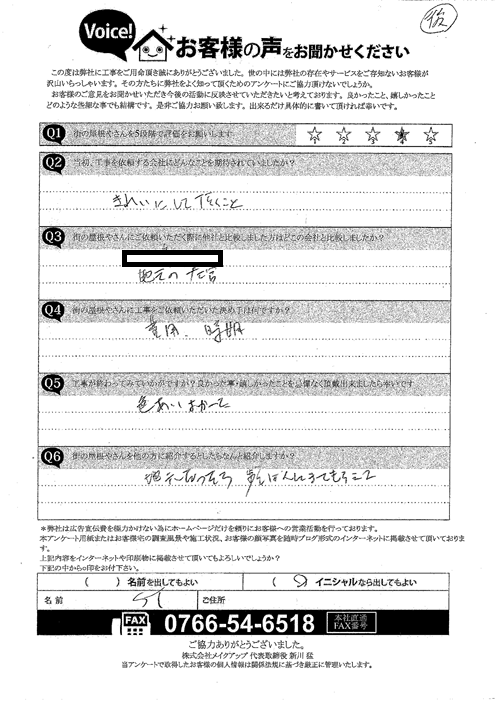 後
Voice!
お客様の声をお聞かせください
この度は弊社に工事をご用命頂き誠にありがとうございました。世の中には弊社の存在やサービスをご存知ないお客様が
沢山いらっしゃいます。その方たちに弊社をよく知って頂くためのアンケートにご協力頂けないでしょうか。
お客様のご意見をお聞かせいただき今後の活動に反映させていただきたいと考えております。良かったこと、嬉しかったこと
どのような些細な事でも結構です。是非ご協力お願い致します。出来るだけ具体的に書いて頂ければ幸いです。
Q1 街の屋根やさんを5段階で評価をお願いします 1 2 3 4 5
Q2 当初、工事を依頼する会社にどんなことを期待されていましたか?
きれいにして頂くこと
Q3 街の屋根やさんにご依頼いただく際に他社と比較しました方はどこの会社と比較しましたか?
地元の
Q4 街の屋根やさんに工事をご依頼いただいた決め手は何ですか?
費用、時期
Q5 工事が終わってみていかがですか?良かった事・嬉しかったことを忌憚なく頂戴出来ましたら幸いです
色あいよかった
Q6 街の屋根やさんを他の方に紹介するとしたらなんと紹介しますか?
*弊社は広告宣伝費を極力かけない為にホームページだけを頼りにお客様への営業活動を行っております。
本アンケート用紙またはお客様宅の調査風景や施工状況、お客様の顔写真を随時ブログ形式のインターネットに掲載させて頂いております。
上記内容をインターネットや印刷物に掲載させて頂いてもよろしいでしょうか?
下記の中から○印をお付下さい。
( ) 名前を出してもよい ( ○ ) イニシャルなら出してもよい
名前 S.T ご住所
FAX 0766-54-6518 本社直通 FAX番号
ご協力ありがとうございました。
株式会社メイクアップ 代表取締役 新川 猛
当アンケートで取得したお客様の個人情報は関係法規に基づき厳正に管理いたします。